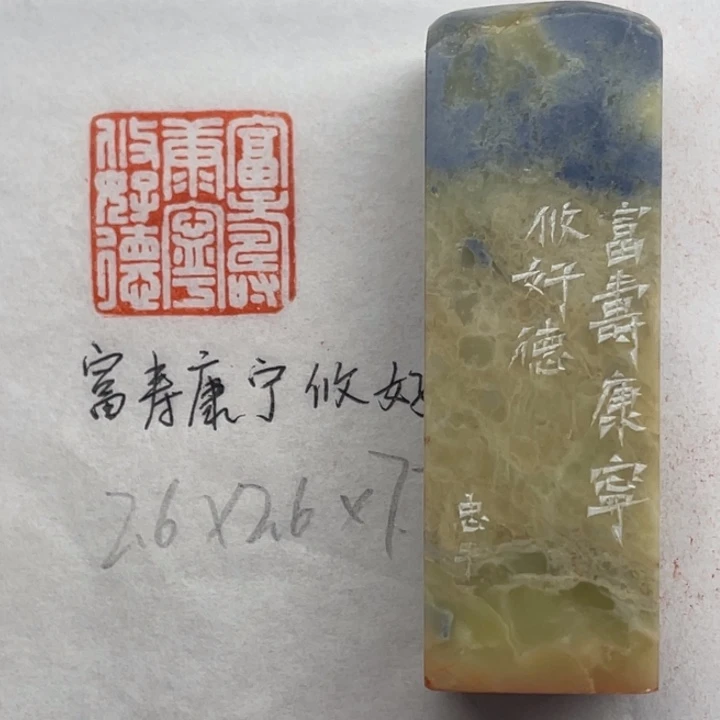 富壽
康寧
攸好德
富寿康宁攸好
2.6×2.6×7.
富壽康寧
攸好德
忠